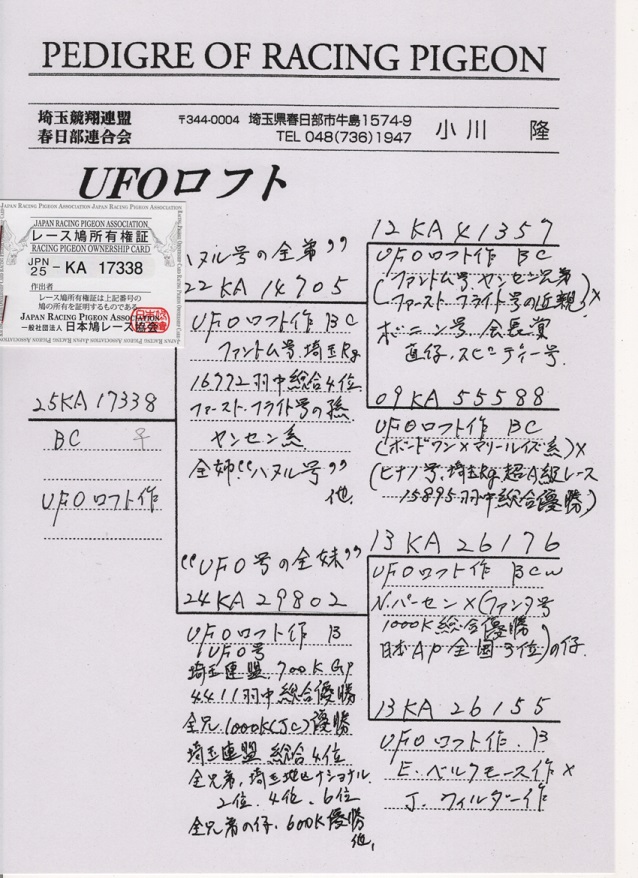 PEDIGRE OF RACING PIGEON
埼玉競翔連盟
春日部連合会
〒344-0004 埼玉県春日部市牛島1574-9
TEL 048(736)1947
小川 隆
UFOロフト
JAPAN RACING PIGEON ASSOCIATION
レース鳩所有権証
RACING PIGEON OWNERSHIP CARD
JPN
25 - KA 17338
作出者
レース鳩所有権証は上記番号の
鳩の所有を証明するものである
JAPAN RACING PIGEON ASSOCIATION
一般社団法人 日本鳩レース協会
25KA17338
BC ♀
UFOロフト作
ハヌル号の全弟〃
22 KA 14705
UFOロフト作 BC
ファントム号、埼玉Rg
16772羽中総合4位
ファースト・フライト号の孫
ヤンセン系
全姉〃ハヌル号〃
他.
〃UFO号の全妹〃
24KA29802
UFOロフト作 B
UFO号
埼玉連盟 700K GP
4411羽中総合優勝
全兄.1000K(JC)優勝
埼玉連盟 総合4位
全兄弟、埼玉地区ナショナル
2位、4位、6位
全兄弟の仔.600K優勝
他,
12KA41357
UFOロフト作 BC
(ファントム号、ヤンセン兄弟
ファースト フライト号の近親)×
ボニーン号 会長賞
直仔.スピーディー号.
09 KA 55588
UFOロフト作 BC
(ボードワン×マリールイズ系)×
(ヒナノ号、埼玉Rg.超A級レース
15895羽中総合優勝)
13KA 26176
UFOロフト作 BCW
N.パーセン×(ファンタ号
1000K総合優勝
日本AP全国3位)の仔.
13KA 26155
UFOロフト作.B
E.ベルクモース作×
J.フィルダー作